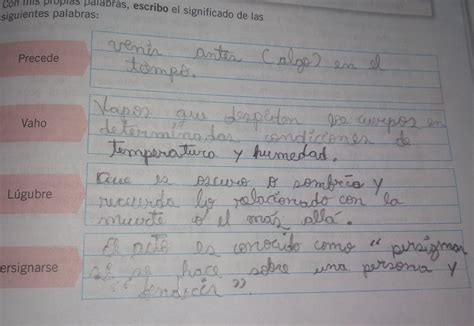 Con mis propias palabras, escribo el significado de las
siguientes palabras:
Precede
venir antes (algo) en el
tiempo.
Vaho
Vapor que despiden los cuerpos en
determinadas condiciones de
temperatura y humedad.
Lúgubre
Que es oscuro o sombrío y
recuerda lo relacionado con la
muerte o el más allá.
ersignarse
El acto es conocido como "persignar
se se hace sobre una persona y
"bendecir".